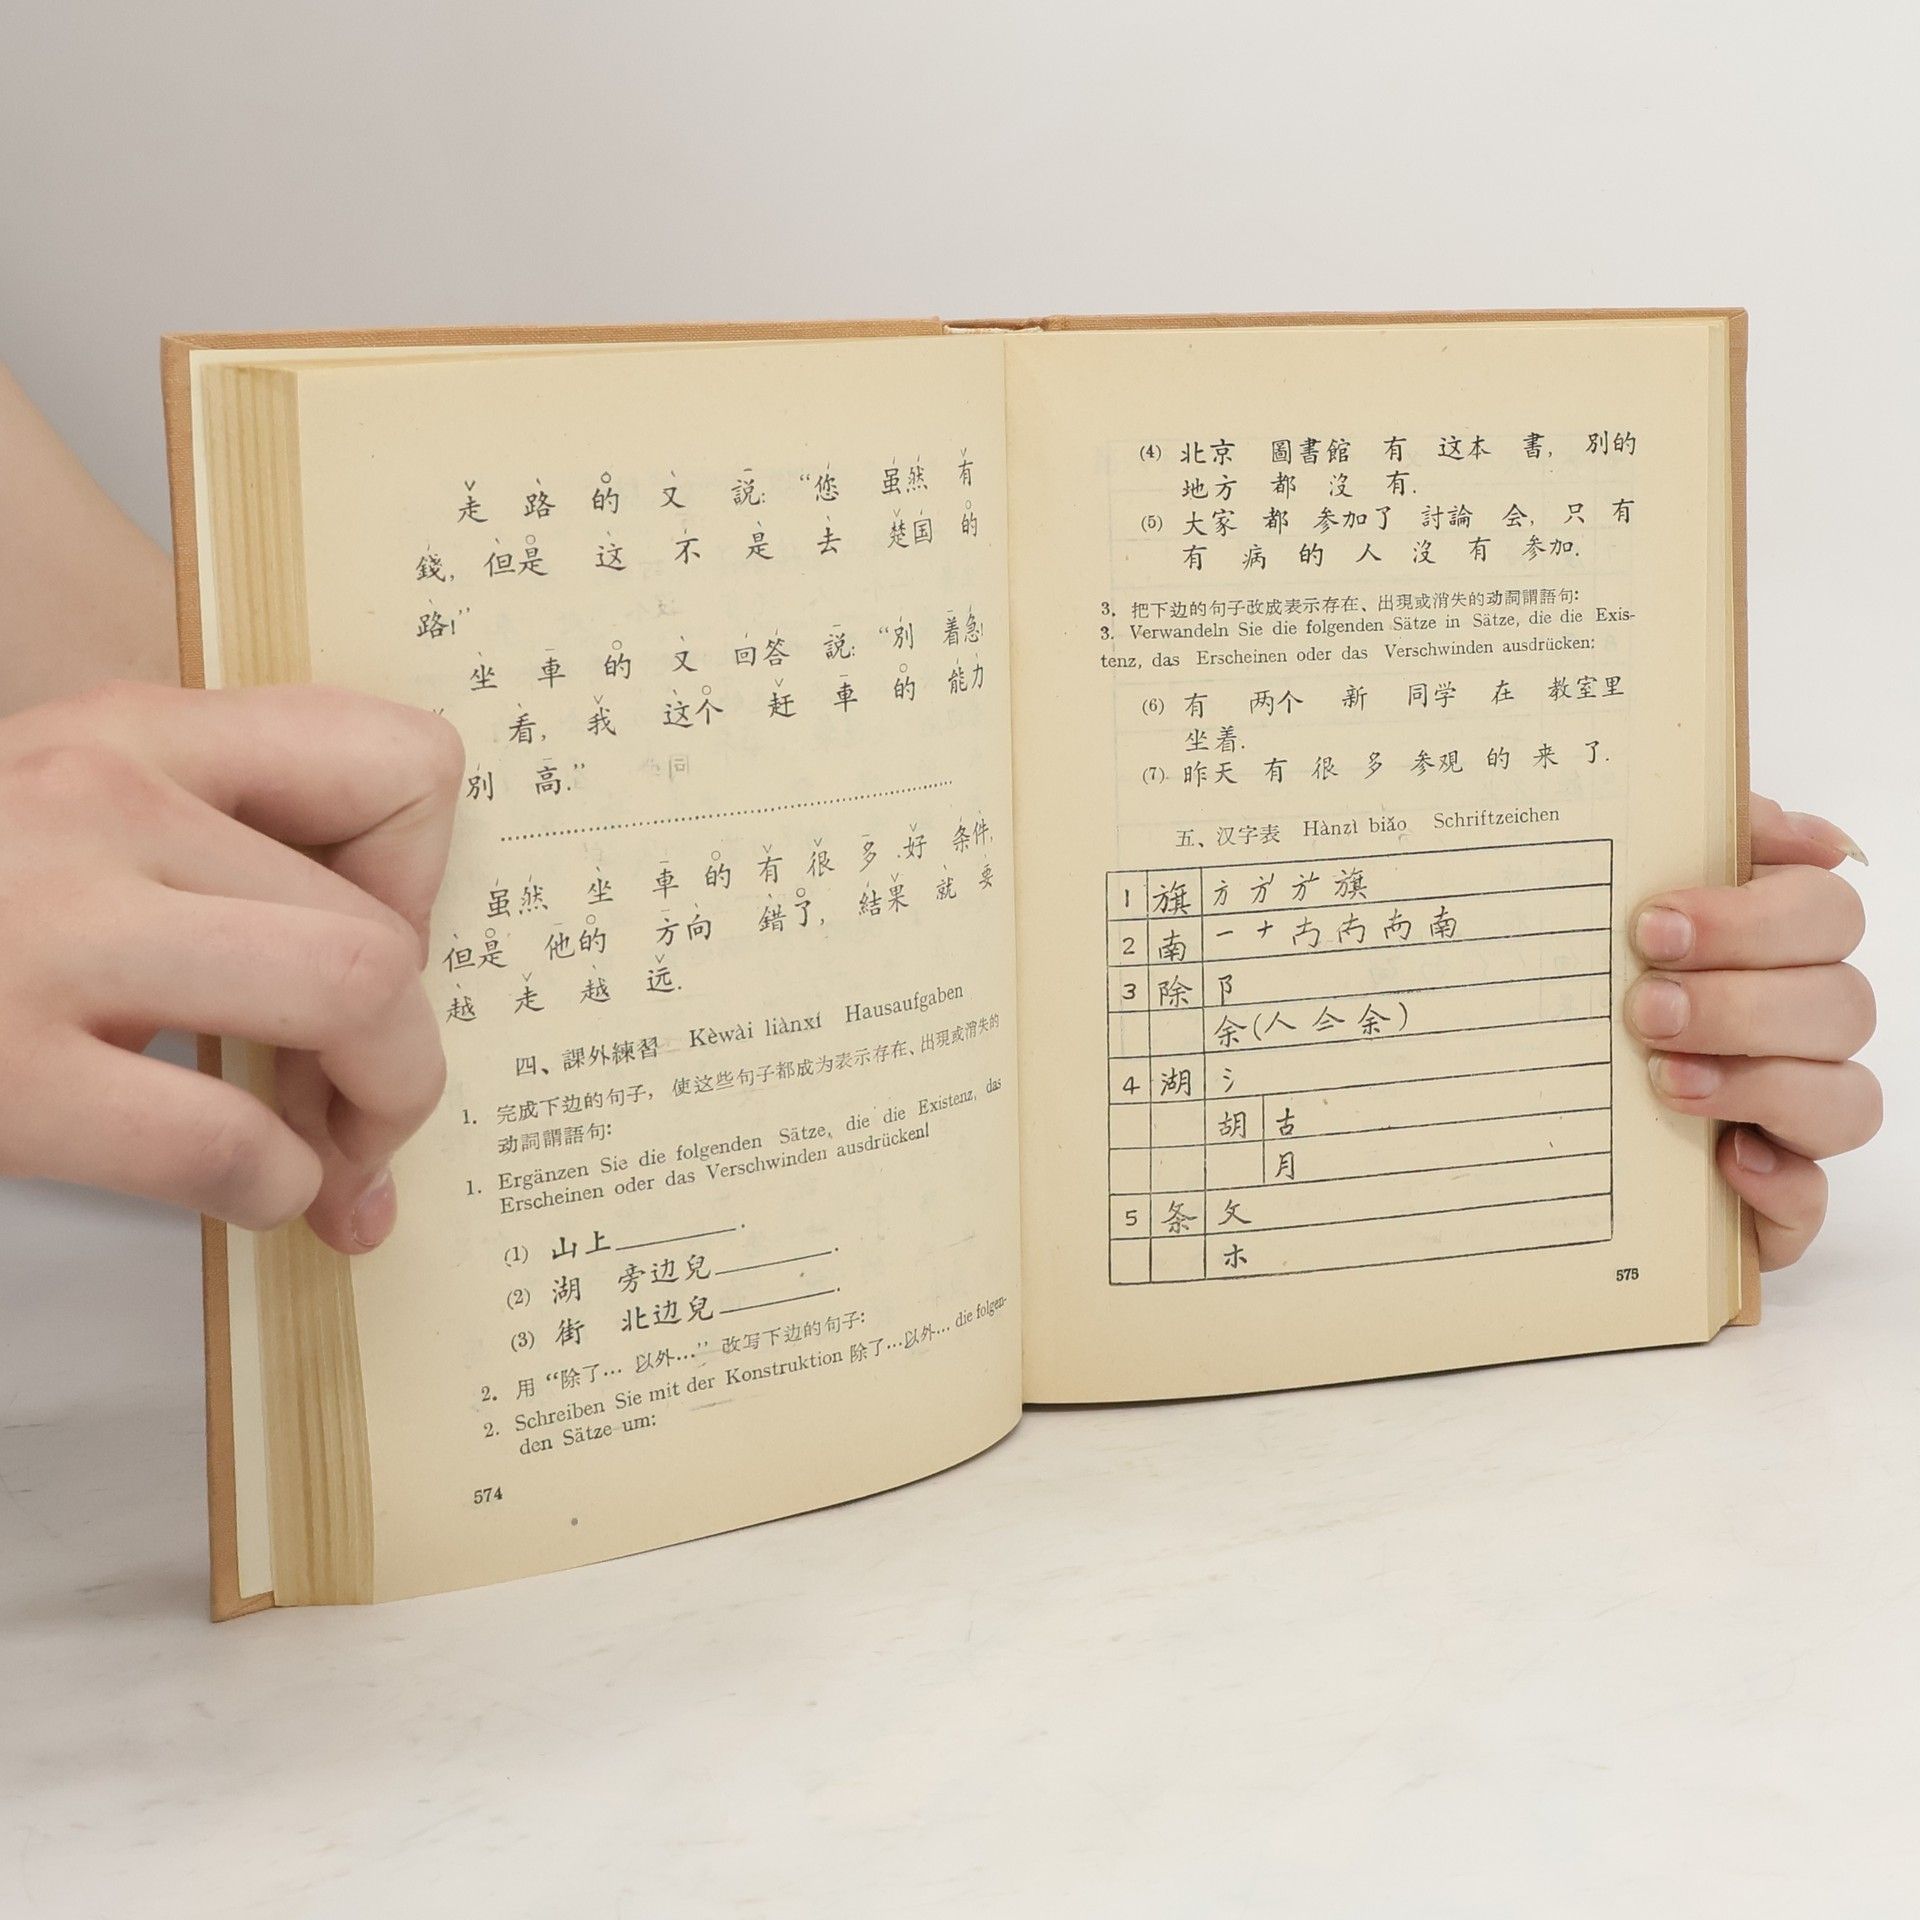 走 路 的 又 説: “您 虽然 有
錢, 但是 这 不 是 去 楚国 的
路!”
坐 車 的 又 回答 説: “別 着急!
看, 我 这个 赶 車 的 能力
別 高.”
虽然 坐 車 的 有 很 多 好 条件,
但是 他的 方向 錯了, 結果 就 要
越 走 越 远.
四、課外練習 Kèwài liànxí Hausaufgaben
1. 完成下边的句子, 使这些句子都成为表示存在、出現或消失的
动詞謂語句:
1. Ergänzen Sie die folgenden Sätze, die die Existenz, das
Erscheinen oder das Verschwinden ausdrücken!
(1) 山上______.
(2) 湖 旁边兒______.
(3) 街 北边兒______.
2. 用 “除了… 以外…” 改写下边的句子:
2. Schreiben Sie mit der Konstruktion 除了…以外… die folgen-
den Sätze um:
574
(4) 北京 圖書館 有 这本 書, 別的
地方 都 沒 有.
(5) 大家 都 参加了 討論 会, 只 有
有 病 的 人 沒 有 参加.
3. 把下边的句子改成表示存在、出現或消失的动詞謂語句:
3. Verwandeln Sie die folgenden Sätze in Sätze, die die Exis-
tenz, das Erscheinen oder das Verschwinden ausdrücken:
(6) 有 两个 新 同学 在 教室里
坐着.
(7) 昨天 有 很 多 参观 的 来 了.
五、汉字表 Hànzì biǎo Schriftzeichen
1 旗 方 旗
2 南 一 十 南
3 除 阝
余(人 亼 余)
4 湖 氵
胡 古
月
5 条 夂
朩
575